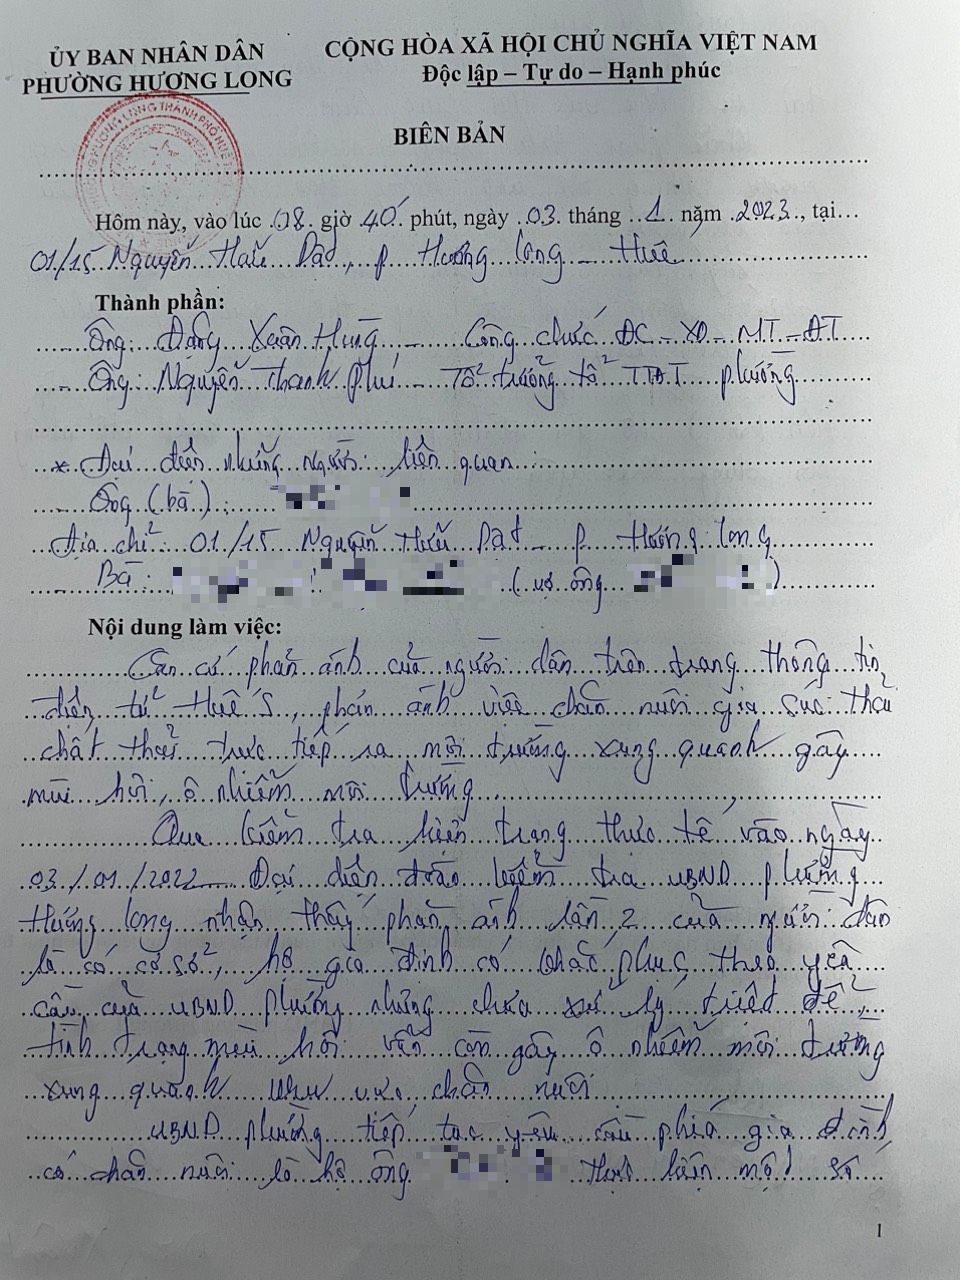 ỦY BAN NHÂN DÂN
PHƯỜNG HƯƠNG LONG
CỘNG HÒA XÃ HỘI CHỦ NGHĨA VIỆT NAM
Độc lập – Tự do – Hạnh phúc
BIÊN BẢN
Hôm này, vào lúc 08 giờ 40 phút, ngày 03 tháng 1 năm 2023, tại
01/15 Nguyễn Hữu Dật, P Hương Long - Huế
Thành phần:
- Ông: Đặng Xuân Hùng - Công chức ĐC - XD - MT - ĐT
- Ông Nguyễn Thanh Phú - Tổ trưởng tổ TTĐT phường
* Đại diện những người liên quan
Ông (bà):
Địa chỉ: 01/15 Nguyễn Hữu Dật - P Hương Long
Bà: (vợ ông )
Nội dung làm việc:
Căn cứ phản ánh của người dân trên trang thông tin
điện tử Huế S, phản ánh việc chăn nuôi gia súc thải
chất thải trực tiếp ra môi trường xung quanh gây
mùi hôi, ô nhiễm môi trường
Qua kiểm tra hiện trạng thực tế vào ngày
03/01/2022 Đại diện đoàn kiểm tra UBND phường
Hương Long nhận thấy phản ánh lần 2 của người dân
là có cơ sở, hộ gia đình có khắc phục theo yêu
cầu của UBND phường nhưng chưa xử lý triệt để,
tình trạng mùi hôi vẫn còn gây ô nhiễm môi trường
xung quanh khu vực chăn nuôi
UBND phường tiếp tục yêu cầu phía gia đình
có chăn nuôi là hộ ông thực hiện một số
1